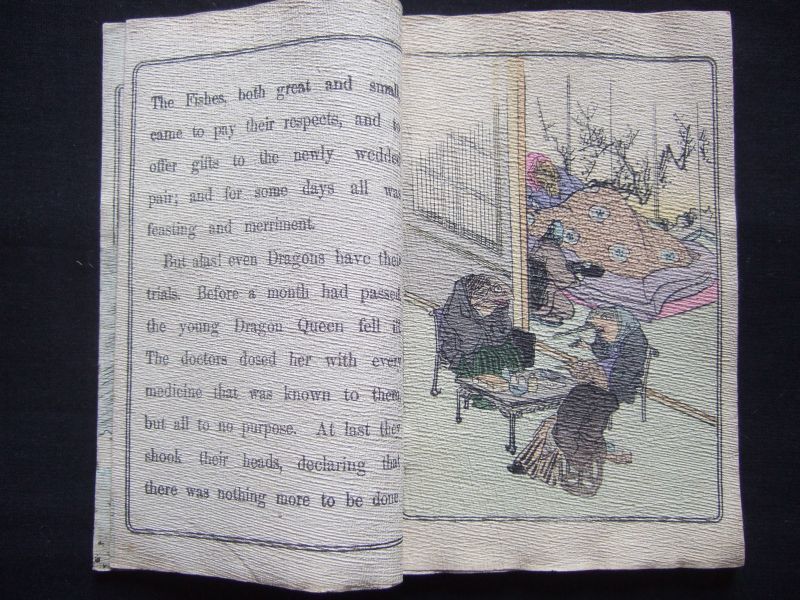 The Fishes, both great and small
came to pay their respects, and to
offer gifts to the newly wedded
pair; and for some days all was
feasting and merriment.
But alas! even Dragons have their
trials. Before a month had passed
the young Dragon Queen fell ill
The doctors dosed her with every
medicine that was known to them
but all to no purpose. At last they
shook their heads, declaring that
there was nothing more to be done